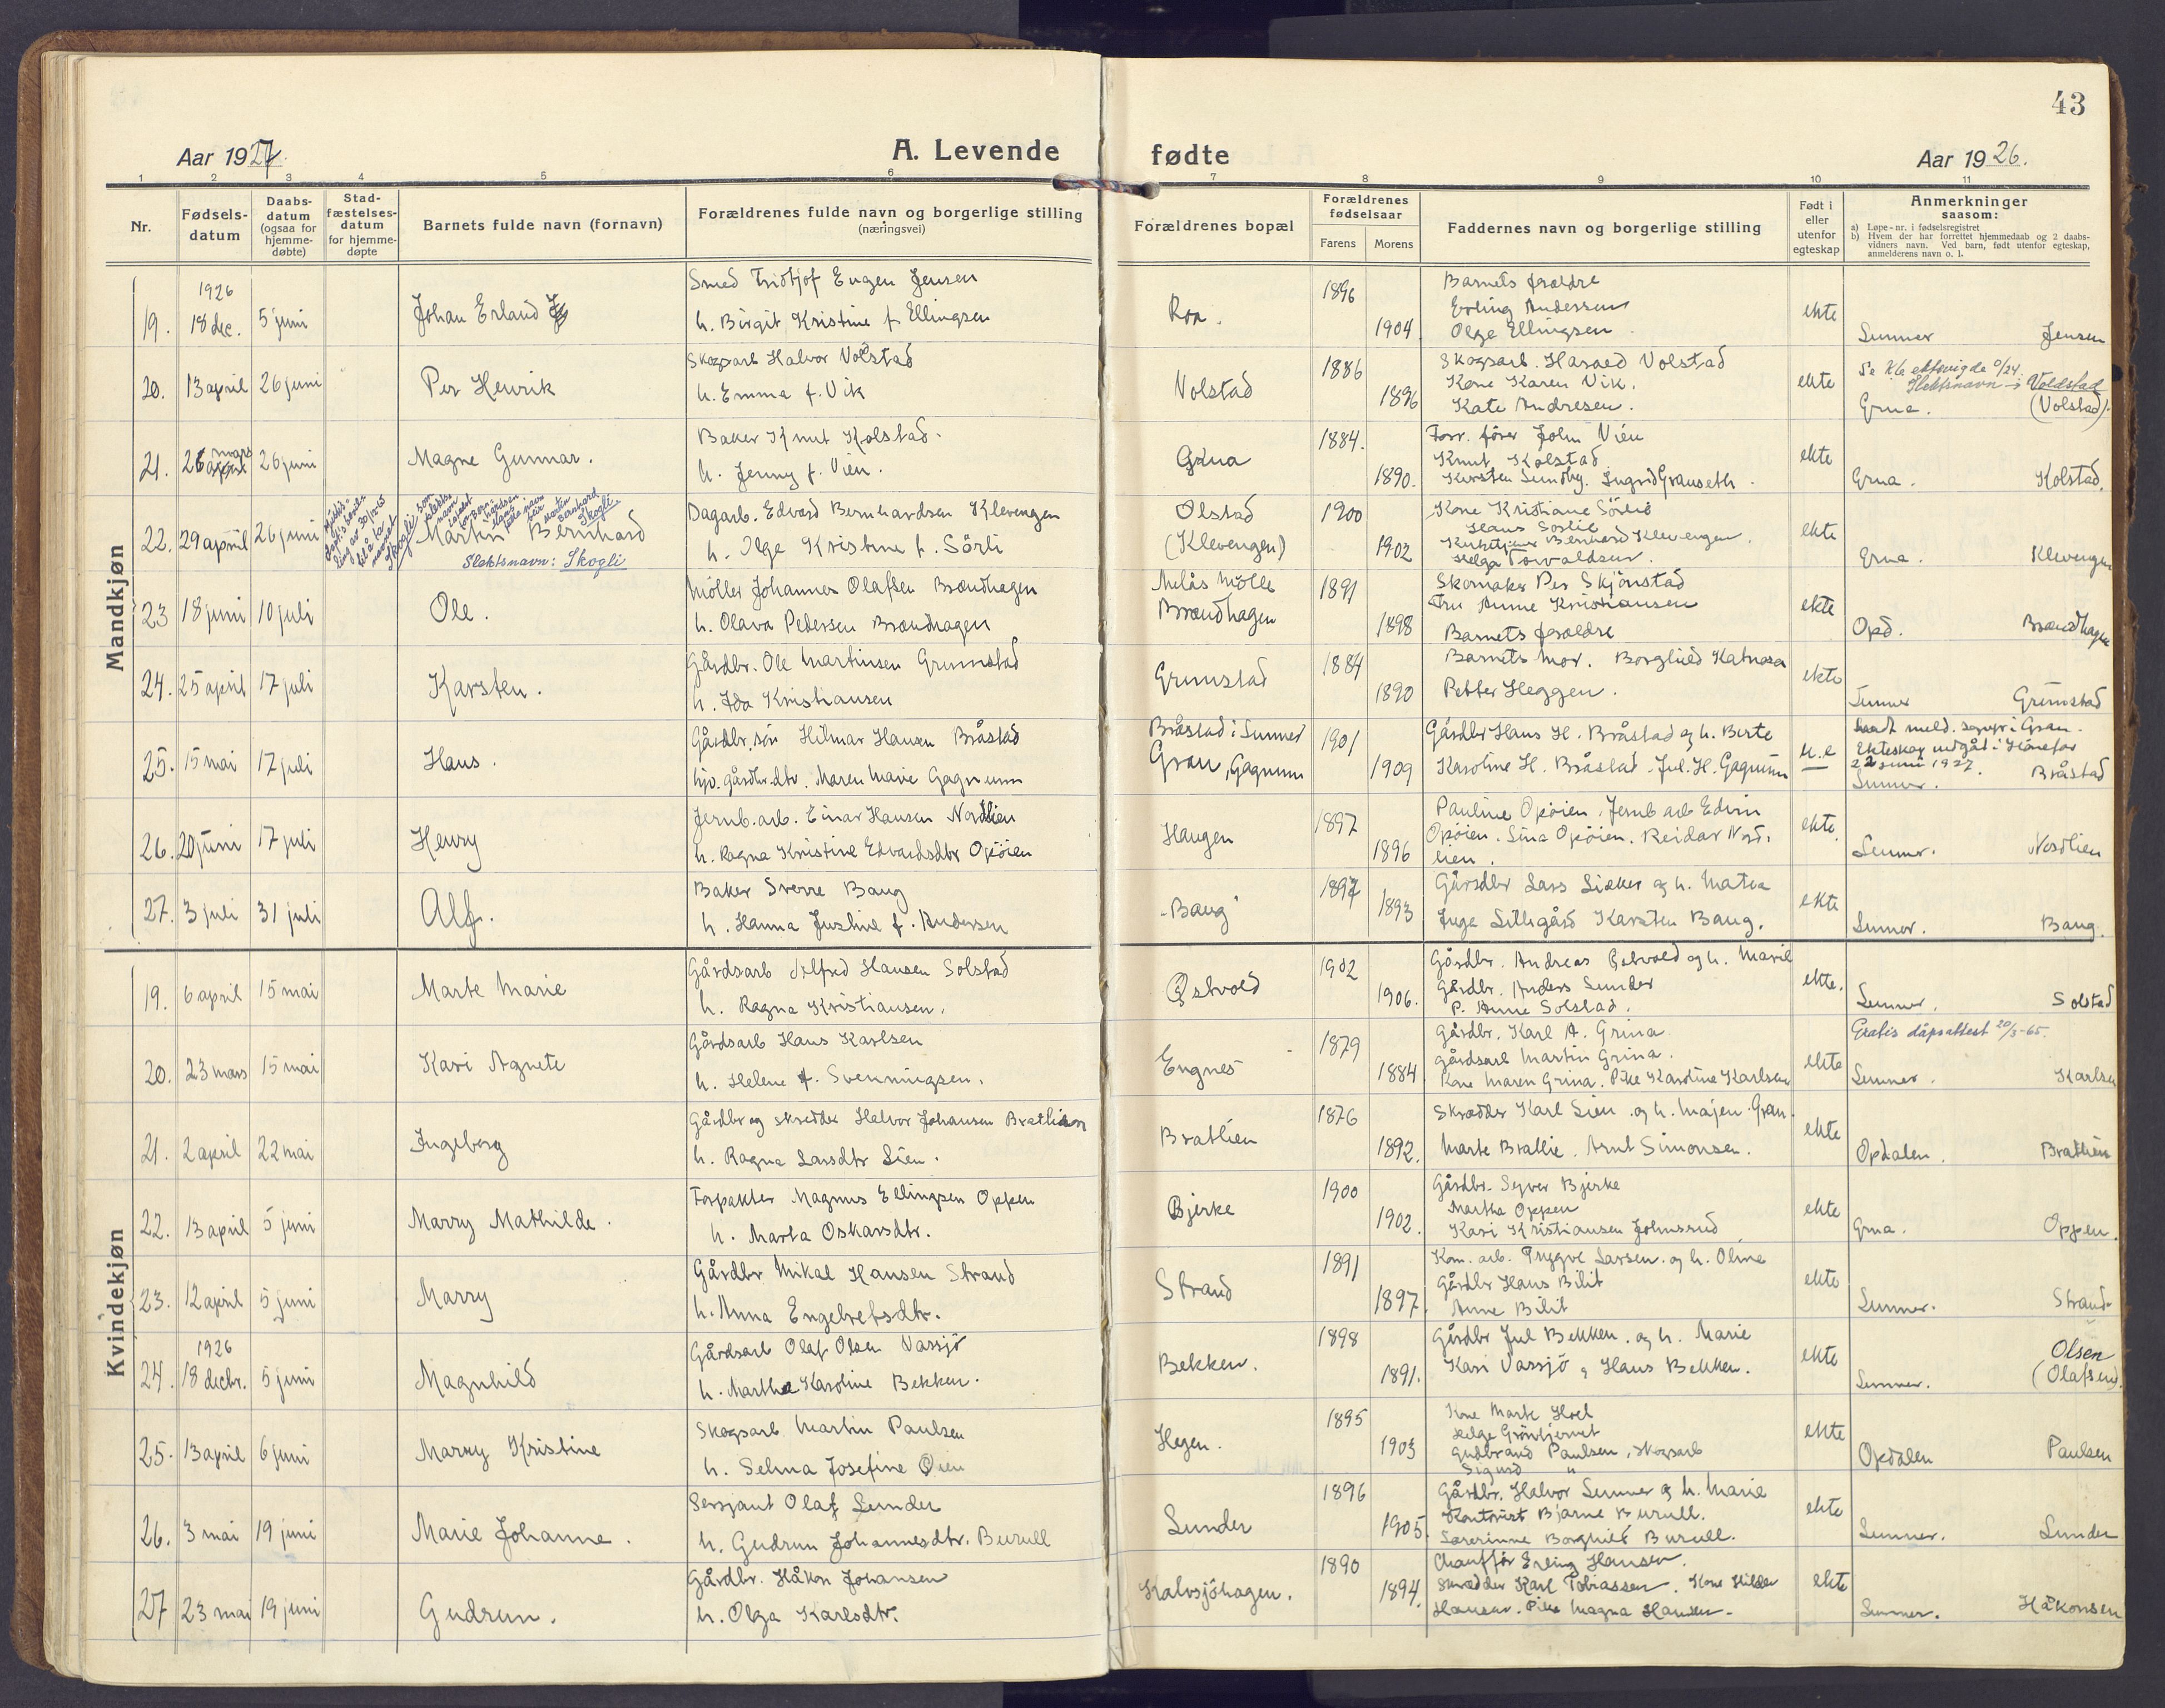 43
Aar 1927.
A. Levende
fødte
Aar 1926.
1 2 3 4 5 6 7 8 9 10 11
Nr.
Fødsels-
datum
Daabs-
datum
(ogsaa for
hjemme-
døbte)
Stad-
fæstelses-
datum
for hjemme-
døpte
Barnets fulde navn (fornavn)
Forældrenes fulde navn og borgerlige stilling
(næringsvei)
Forældrenes bopæl
Forældrenes
fødselsaar
Farens
Morens
Faddernes navn og borgerlige stilling
Født i
eller
utenfor
egteskap
Anmerkninger
saasom:
a) Løpe-nr. i fødselsregistret
b) Hvem der har forrettet hjemmedaab og 2 daabs-
vidners navn. Ved barn, født utenfor egteskap,
anmelderens navn o. l.
Mandkjøn
19. 1926 18 dec. 5 juni Johan Erland
Smed Fridtjof Eugen Jensen
h. Birgit Kristine f. Ellingsen
Roa. 1896 1904
Barnets foreldre
Erling Anderssen
Olga Ellingsen
ekte Lunner Jensen
20. 13 april 26 juni Per Henrik
Skogsarb Halvor Volstad
h. Emma f. Vik
Volstad 1886 1896
Skogsarb. Harald Volstad
Kone Karen Vik.
Kate Andresen.
ekte
Slektsnavn Voldstad
Grua. (Volstad).
21. 26 mars 26 juni Magne Gunnar.
Baker Knut Kolstad.
h. Jenny f. Vien.
Grua 1884. 1890.
Forr. fører John Vien
Knut Kolstad
Kirsten Lundby. Ingrid Granseth.
ekte Grua. Kolstad.
22. 29 april 26 juni Martin Bernhard
Slektsnavn: Skogli
Dagarb. Edvard Bernhardsen Klevengen
h. Olga Kristine f. Sörli
Olstad
(Klevengen) 1900 1902
Kone Kristiane Sörlie
Hans Sörlie
Bernhard Klevengen.
Helga Torvaldsen.
ekte Grua. Klevengen
23 18 juni 10 juli Ole.
Möller Johannes Olafsen Brændhagen
h. Olava Pedersen Brændhagen
Mölle
Brændhagen 1891 1898
Skomaker Per Skjönstad
Fru Anne Kristiansen
Barnets foreldre
ekte Opd. Brændhagen
24. 25 april 17 juli Karsten.
Gårdbr. Ole Martinsen Grimstad
h. Ida Kristiansen
Grimstad 1884 1890
Barnets mor. Borghild Katnosa
Petter Heggen.
ekte Lunner Grimstad
25. 15 mai 17 juli Hans.
Gårdbr. sön Hilmar Hansen Bråstad
hjv. gårdbr.dtr. Maren Marie Gagnum
Bråstad i Lunner
Gran, Gagnum 1901 1909
Gårdbr Hans H. Bråstad og h. Berte
Karoline H. Bråstad. Jul. H. Gagnum
u.e
Ekteskap indgåt i Hönefos
22 juni 1927.
Lunner. Bråstad
26. 20 juni 17 juli Henry
Jernb.arb. Einar Hansen Nordlien
h. Ragna Kristine Edvardsdtr Opöien
Haugen 1897 1896
Pauline Opöien, Jernb arb Edvin
Opöien. Lina Opöien. Reidar Nord-
lien.
ekte. Lunner. Nordlien
27. 3 juli 31 juli Alf.
Baker Sverre Baug
h. Hanna Justine f. Andersen
Baug 1897 1893
Gårdbr Lars Lieker og h. Matea
Inga Lillegård Karsten Baug.
ekte Lunner. Baug.
Kvindekjøn
19. 6 april 15 mai Marte Marie
Gårdsarb Alfred Hansen Solstad
h. Ragna Kristiansen.
Östvold 1902 1906.
Gårdbr. Andreas Östvold og h. Marie
Gårdbr. Anders Lunder
P. Anne Solstad.
ekte. Lunner. Solstad
20. 23 mars 15 mai Kari Agnete
Gårdsarb Hans Karlsen
h. Helene f. Svenningsen.
Engnes 1879 1884
Gårdbr. Karl A. Grina
gårdsarb Martin Grina.
Kone Maren Grina. Pike Karoline Karlsen
ekte
Gratis dåpsattest 20/3-65.
Lunner. Karlsen
21. 2 april 22 mai Ingeborg
Gårdbr og skredder Halvor Johansen Bratlien
h. Ragna Larsdtr Lien.
Bratlien 1876 1892.
Skrædder Karl Lien og h. Majen. Gran.
Marte Bratlie. Arnt Simonsen.
ekte Opdalen. Bratlien
22. 13 april 5 juni Marry Mathilde.
Forpakter Magnus Ellingsen Oppen
h. Marta Oskarsdtr.
Bjerke 1900 1902.
Gårdbr. Syver Bjerke
Martha Oppen
Kari Kristiansen Johnsrud
ekte Grua. Oppen.
23. 12 april 5 juni Marry
Gårdbr Mikal Hansen Strand
h. Anna Engebretsdtr.
Strand 1891 1897.
Kom. arb. Trygve Larsen og h. Oline
Gårdbr Hans Bilit
Anne Bilit
ekte Lunner. Strand.
24. 1926 18 decbr. 5 juni Magnhild
Gårdsarb Olaf Olsen Vassjö
h. Martha Karoline Bekken.
Bekken. 1898 1891.
Gårdbr Jul Bekken. og h. Marie
Kari Vassjö og Hans Bekken.
ekte Lunner. Olsen
(Olafsen).
25. 13 april 6 juni Marry Kristine
Skogsarb Martin Paulsen
h. Selma Josefine Öien
Hagen. 1895 1903
Kone Marte Hoel
Helge Gröntjernet
Gudbrand Paulsen, skogsarb
Sigurd "
ekte Opdalen Paulsen
26. 3 mai 19 juni Marie Johanne.
Sersjant Olaf Lunder
h. Gudrun Johannesdtr. Burull
Lunder 1896 1905.
Gårdbr. Halvor Lunner og h. Marie
Kontorist Bjarne Burull.
Lærerinne Borghild Burull.
ekte Lunner. Lunder
27 23 mai 19 juni Gudrun.
Gårdbr. Håkon Johansen
h. Olga Karlsdtr.
Kalvsjöhagen. 1890 1894.
Chaufför Erling Hansen.
Skrædder Karl Tobiassen. Kone Hilda
Hansen. Pike Magna Hansen.
ekte Lunner. Håkonsen